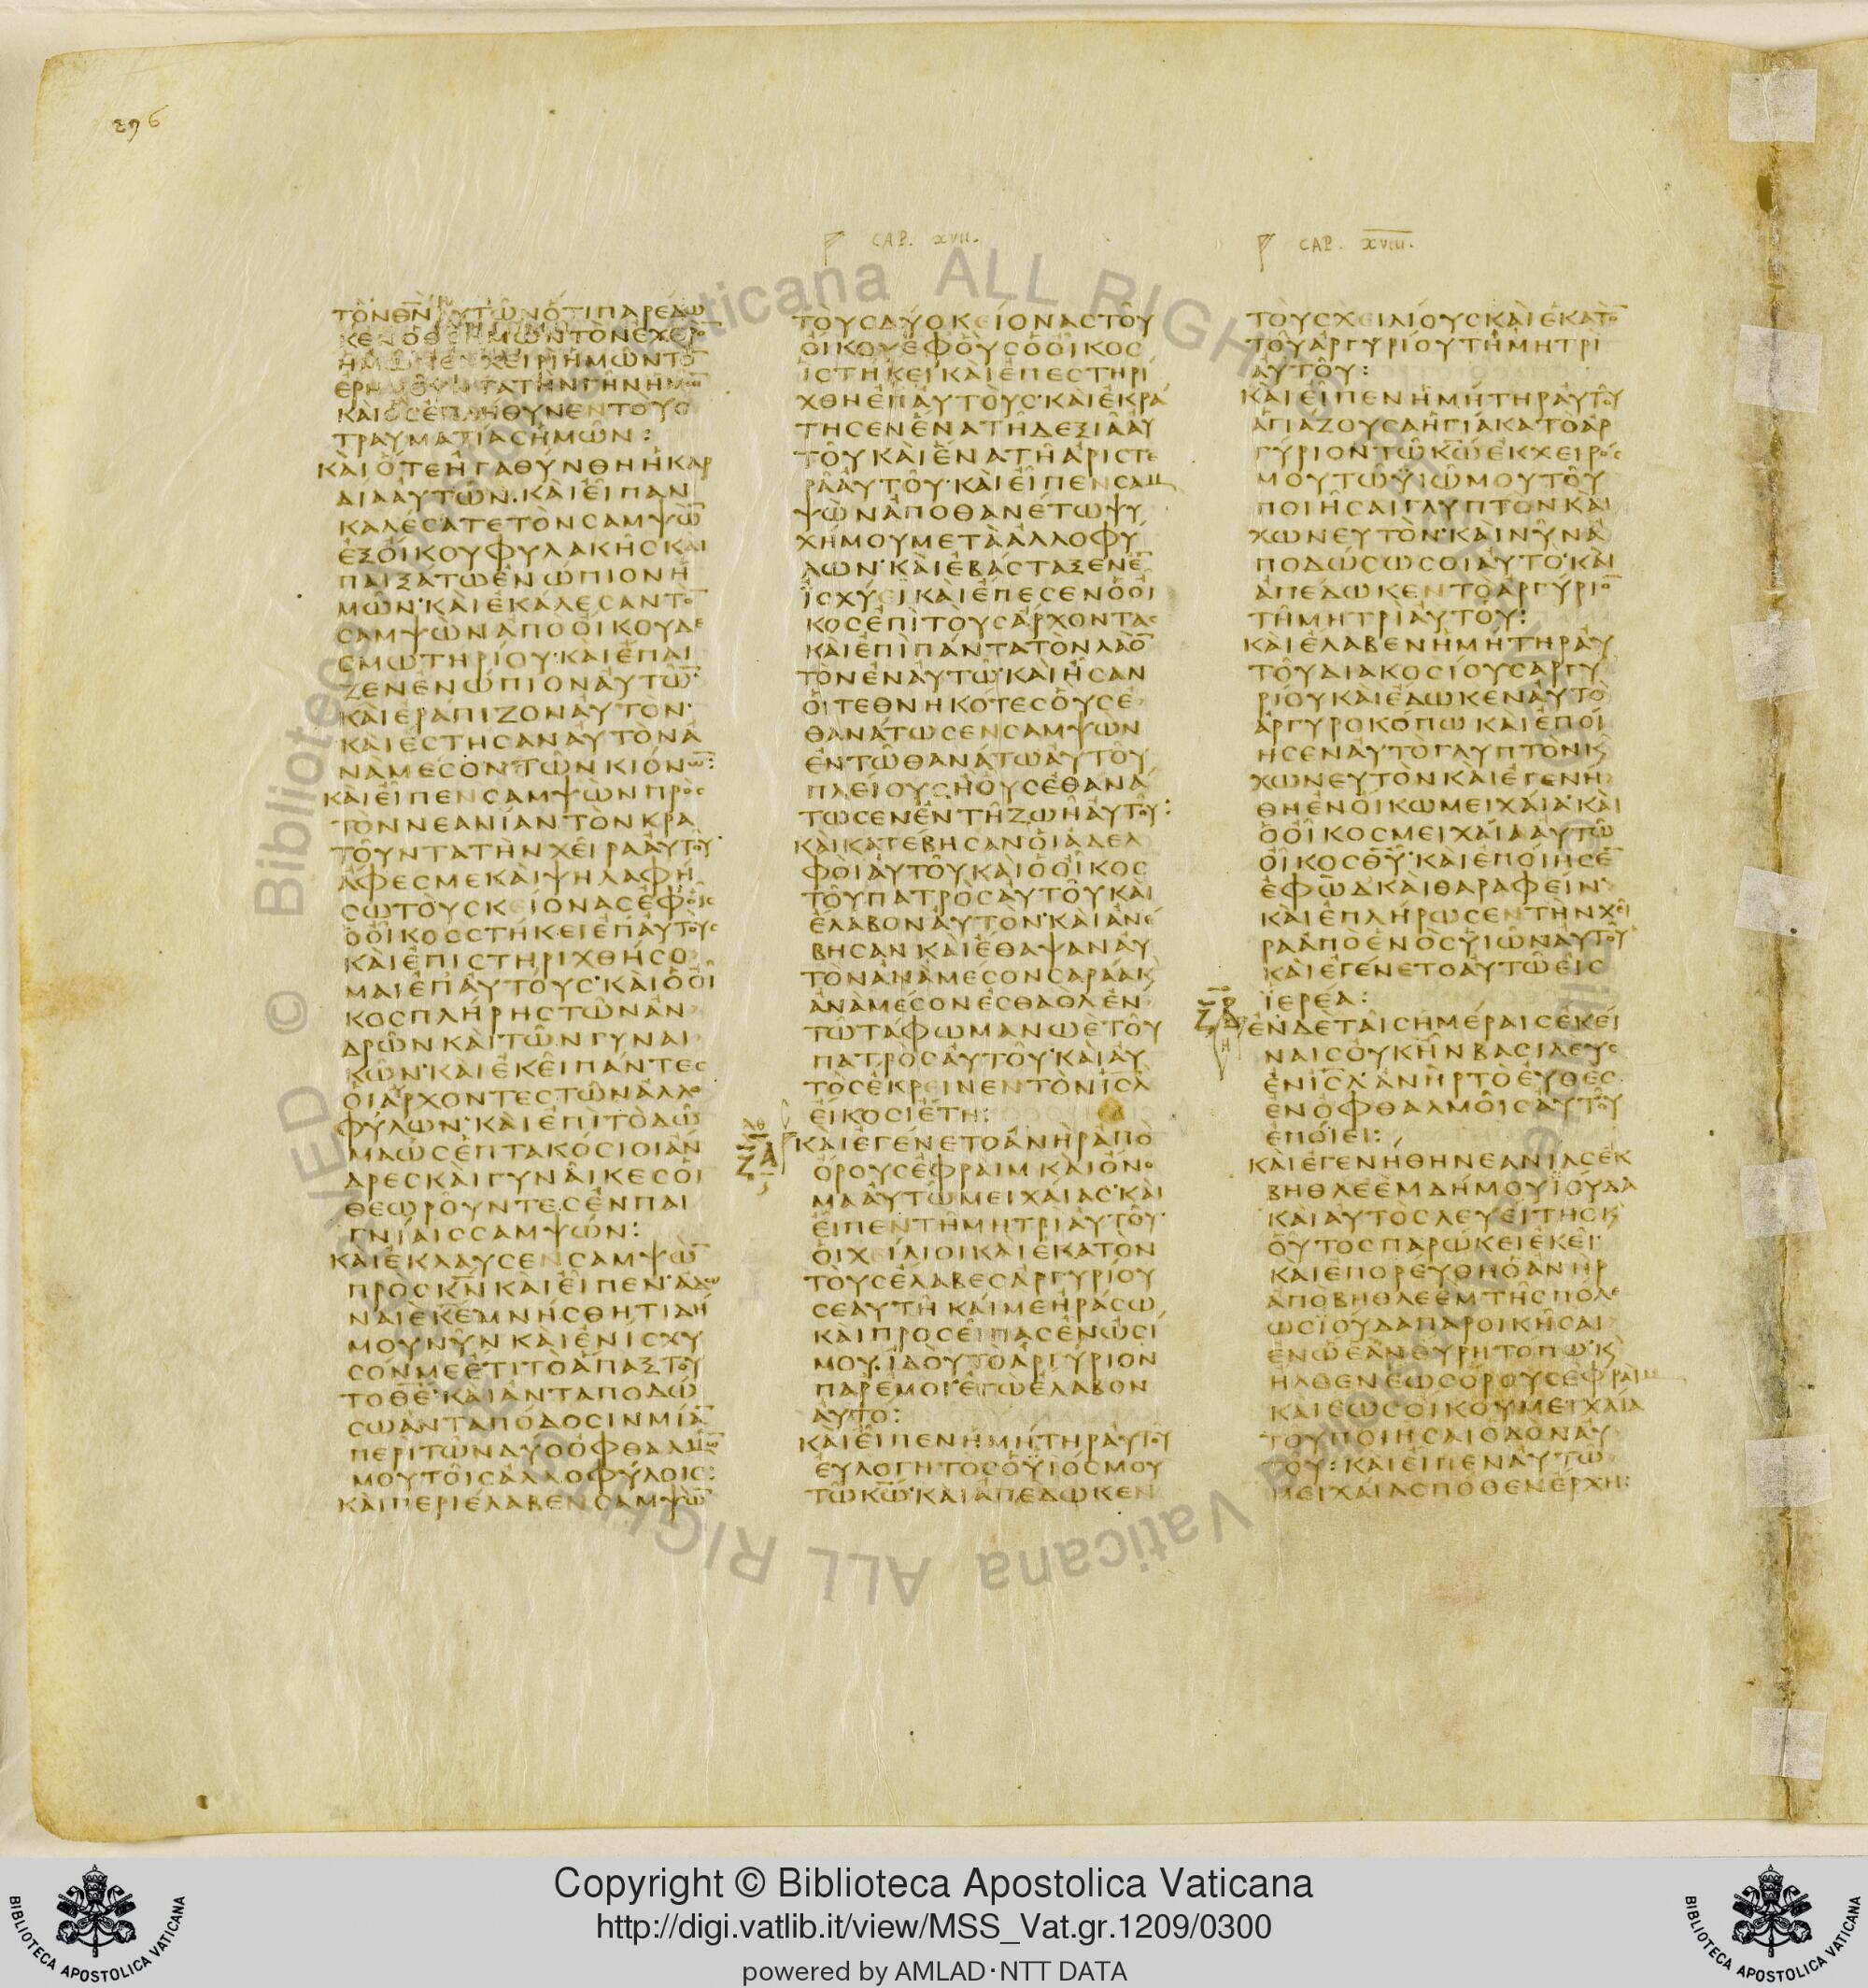 296
CAP. XVII.
CAP. XVIII.
ΤῸΝΘ̅Ν̅ΑΥΤΩ͂ΝὍΤΙΠΑΡΕΔΩ
ΚΕΝὉΘ̅Σ̅ἩΜΩ͂ΝΤῸΝἘΧΘΡΟ̅
ἩΜΩ͂ΝΕΝΧΕΙΡῚἩΜΩ͂ΝΤΟ̅
ΕΡΗΜΟΥΝΤΑΤῊΝΓΗ͂ΝἩΜΩ̅
ΚΑῚὋΣἘΠΛΗΘΥΝΕΝΤΟΥΣ
ΤΡΑΥΜΑΤΙΑΣἩΜΩ͂Ν:
ΚΑῚὍΤΕἨΓΑΘΎΝΘΗἩΚΑΡ
ΔΙΑΑΥΤΩ͂Ν.ΚΑῚΕἾΠΑΝ
ΚΑΛΕΣΑΤΕΤῸΝΣΑΜΨῺ̅
ἘΞΟἼΚΟΥΦΥΛΑΚΗ͂ΣΚΑΙ
ΠΑΙΞΆΤΩἘΝΏΠΙΟΝἩ
ΜΩ͂Ν·ΚΑῚἘΚΆΛΕΣΑΝΤΟ̅
ΣΑΜΨῺΝἈΠΟΟἼΚΟΥΔΕ
ΣΜΩΤΗΡΊΟΥ·ΚΑῚἘΠΑΙ
ΖΕΝἘΝΏΠΙΟΝΑΥΤΩ̅·
ΚΑῚἘΡΆΠΙΖΟΝΑΥΤΟΝ·
ΚΑῚἜΣΤΗΣΑΝΑΥΤῸΝἈ
ΝΑΜΕΣΟΝΤΩ͂ΝΚΙΌΝΩ̅:
ΚΑῚΕἾΠΕΝΣΑΜΨῺΝΠΡῸΣ
ΤῸΝΝΕΑΝΊΑΝΤῸΝΚΡΑ
ΤΟΥ͂ΝΤΑΤῊΝΧΕΙ͂ΡΑΑΥΤΟΥ͂·
ἌΦΕΣΜΕΚΑῚΨΗΛΑΦΉ
ΣΩΤΟῪΣΚΕΙΟΝΑΣἘΦΟἿΣ
ὉΟἾΚΟΣΣΤΗΚΕΙἘΠΑΥΤΟΥΣ
ΚΑῚἘΠΙΣΤΗΡΙΧΘΉΣΟ
ΜΑΙἘΠΑΥΤΟΎΣ·ΚΑῚὉΟΙ
ΚΟΣΠΛΉΡΗΣΤΩ͂ΝΑΝ
ΔΡΩ͂ΝΚΑῚΤΩ͂ΝΓΥΝΑΙ
ΚΩ͂Ν·ΚΑῚἘΚΕΙ͂ΠΆΝΤΕΣ
ΟἹΑΡΧΟΝΤΕΣΤΩ͂ΝἈΛΛΟ
ΦΎΛΩΝ·ΚΑῚἘΠῚΤῸΔΩ͂
ΜΑὩΣἘΠΤΑΚΌΣΙΟΙΑΝ
ΔΡΕΣΚΑῚΓΥΝΑΙ͂ΚΕΣΟἹ
ΘΕΩΡΟΥ͂ΝΤΕΣἘΝΠΑΙ
ΓΝΊΑΙΣΣΑΜΨΏΝ:
ΚΑῚἘΚΛΑΥΣΕΝΣΑΜΨῺ̅
ΠΡῸΣΚ̅Ν̅ΚΑῚΕἾΠΕΝ·ΑΔΩ
ΝΑΙἘΚΈΜΝΉΣΘΗΤΙΔΉ
ΜΟΥΝΥ͂ΝΚΑῚἘΝΊΣΧΥ
ΣΌΝΜΕἜΤΙΤῸἍΠΑΞΤΟΥ
ΤΟΘΈ·ΚΑῚἈΝΤΑΠΟΔΏ
ΣΩΑΝΤΑΠΌΔΟΣΙΝΜΙΑ̅
ΠΕΡῚΤΩ͂ΝΔΥΟὈΦΘΑΛΜΩ̅
ΜΟΥΤΟΙ͂ΣἈΛΛΟΦΎΛΟΙΣ:
ΚΑῚΠΕΡΙΈΛΑΒΕΝΣΑΜΨῺ̅
ΤΟΥΣΔΎΟΚΕΊΟΝΑΣΤΟΥ͂
ΟἼΚΟΥἘΦΟὛΣὉΟἾΚΟΣ
ΙΣΤΗΚΕΙΚΑῚἘΠΕΣΤΗΡΙ
ΧΘΗἘΠΑΥΤΟΥΣ·ΚΑῚἘΚΡΑ
ΤΗΣΕΝἝΝΑΤΗ͂ΔΕΞΙΑ͂ΑΥ
ΤΟΥ͂ΚΑῚἝΝΑΤΗ͂ΑΡΙΣΤΕ
ΡΑ͂ΑΥΤΟΥ͂·ΚΑῚΕἾΠΕΝΣΑΜ
ΨῺΝἈΠΟΘΑΝΈΤΩΨΥ
ΧΉΜΟΥΜΕΤᾺΑΛΛΟΦΥ
ΛΩΝ·ΚΑῚἘΒΆΣΤΑΞΕΝΕ̅
ΪΣΧΎΕΙΚΑῚἜΠΕΣΕΝὉΟΙ
ΚΟΣἘΠῚΤΟῪΣΑΡΧΟΝΤΑΣ
ΚΑῚἘΠῚΠΆΝΤΑΤῸΝΛΑΟ̅
ΤῸΝἘΝΑΥΤΩ͂·ΚΑῚἮΣΑΝ
ΟἹΤΕΘΝΗΚΌΤΕΣΟὝΣἘ
ΘΑΝΆΤΩΣΕΝΣΑΜΨΩΝ
ἘΝΤΩ͂ΘΑΝΆΤΩΑΥΤΟΥ͂
ΠΛΕΊΟΥΣἪΟΥΣἘΘΑΝΆ
ΤΩΣΕΝἘΝΤΗ͂ΖΩΗ͂ΑΥΤΟΥ͂:
ΚΑῚΚΑΤΕΒΗΣΑΝΟἹΑΔΕΛ
ΦΟῚΑΥΤΟΥ͂ΚΑῚὉΟἾΚΟΣ
ΤΟΥ͂ΠΑΤΡῸΣΑΥΤΟΥ͂ΚΑῚ
ἘΛΑΒΟΝΑΥΤῸΝ·ΚΑῚΑΝΕ
ΒΗΣΑΝΚΑῚἘΘΑΨΑΝΑΥ
ΤῸΝἈΝΑΜΕΣΟΝΣΑΡΑΑΚ
ἈΝΑΜΕΣΟΝΕΣΘΑΟΛἘΝ
ΤΩ͂ΤΆΦΩΜΑΝΩῈΤΟΥ͂
ΠΑΤΡῸΣΑΥΤΟΥ͂·ΚΑῚΑΥ
ΤῸΣἘΚΡΕΙΝΕΝΤῸΝΙ̅Σ̅Λ̅
ΕἼΚΟΣΙἘΤΗ:
ΚΑῚἘΓΈΝΕΤΟἈΝῊΡἈΠῸ
ὌΡΟΥΣἘΦΡΑΙΜΚΑῚὈΝΟ
ΜΑΑΥΤΩ͂ΜΕΙΧΑΊΑΣ·ΚΑῚ
ΕἾΠΕΝΤΗ͂ΜΗΤΡῚΑΥΤΟΥ͂·
ΟἹΧΕΙΛΙΟΙΚΑῚἘΚΑΤῸΝ
ΤΟῪΣἘΛΑΒΕΣΑΡΓΥΡΊΟΥ
ΣΕΑΥΤΗ͂ΚΑΊΜΕἨΡΆΣΩ
ΚΑῚΠΡΟΣΕΙ͂ΠΑΣἘΝὨΣΊ
ΜΟΥ.ἸΔΟῪΤῸΑΡΓΎΡΙΟΝ
ΠΑΡΕΜΟΊ·ἘΓῺἘΛΑΒΟΝ
ΑΥΤΌ:
ΚΑῚΕἾΠΕΝἩΜΉΤΗΡΑΥΤΟΥ͂
ΕΥΛΟΓΗΤΟΣὉΥΪΟΣΜΟΥ
ΤΩ͂Κ̅Ω̅·ΚΑῚἈΠΕΔΩΚΕΝ
ΤΟῪΣΧΕΙΛΙΟΥΣΚΑῚἘΚΑΤΟ̅
ΤΟΥ͂ΑΡΓΥΡΊΟΥΤΗ͂ΜΗΤΡΙ
ΑΥΤΟΥ͂:
ΚΑῚΕἾΠΕΝἩΜΉΤΗΡΑΥΤΟΥ͂
ἉΓΙΑΖΟΥΣΑἩΓΊΑΚΑΤῸΑΡ
ΓΎΡΙΟΝΤΩ͂Κ̅Ω̅ἘΚΧΕΙΡΌΣ
ΜΟΥΤΩ͂ΥΙΩ͂ΜΟΥΤΟΥ͂
ΠΟΙΗ͂ΣΑΙΓΛΥΠΤῸΝΚΑῚ
ΧΩΝΕΥΤῸΝ·ΚΑῚΝΥ͂ΝΑ
ΠΟΔΏΣΩΣΟΙΑΥΤΌ·ΚΑῚ
ΑΠΕΔΩΚΕΝΤῸΑΡΓΎΡΙΟ̅
ΤΗ͂ΜΗΤΡῚΑΥΤΟΥ͂:
ΚΑῚἘΛΑΒΕΝἩΜΉΤΗΡΑΥ
ΤΟΥ͂ΔΙΑΚΟΣΊΟΥΣΑΡΓΥ
ΡΊΟΥΚΑῚἘΔΩΚΕΝΑΥΤῸ
ΑΡΓΥΡΟΚΌΠΩΚΑῚἘΠΟΊ
ΗΣΕΝΑΥΤῸΓΛΥΠΤῸΝΚ
ΧΩΝΕΥΤῸΝΚΑῚἘΓΕΝΉ
ΘΗἘΝΟΙΚΩΜΕΙΧΑΊΑ·ΚΑῚ
ὉΟἾΚΟΣΜΕΙΧΑΊΑΑΥΤΩ͂
ΟἾΚΟΣΘ̅Υ̅·ΚΑῚἘΠΟΊΗΣΕ̅
ἘΦΩΔ·ΚΑῚΘΑΡΑΦΕΊΝ·
ΚΑῚἘΠΛΉΡΩΣΕΝΤῊΝΧΕΙ
ΡΑΑΠῸἙΝῸΣΥΪΩ͂ΝΑΥΤΟΥ͂
ΚΑῚἘΓΈΝΕΤΟΑΥΤΩ͂ΕἸΣ
ἹΕΡΈΑ:
ἘΝΔῈΤΑΙ͂ΣἩΜΈΡΑΙΣἘΚΕΊ
ΝΑΙΣΟΥΚΗ͂ΝΒΑΣΙΛΕΥΣ
ἘΝΙ̅Σ̅Λ̅ἈΝῊΡΤῸΕΥΘΕΣ
ἘΝὈΦΘΑΛΜΟΙ͂ΣΑΥΤΟΥ͂
ἘΠΟΊΕΙ:
ΚΑῚἘΓΕΝΗΘΗΝΕΑΝΊΑΣἘΚ
ΒΗΘΛΕΈΜΔΉΜΟΥΪΟΥΔΑ
ΚΑῚΑΥΤῸΣΛΕΥΕΊΤΗΣΚ
ΟΥ͂ΤΟΣΠΑΡΏΚΕΙἘΚΕΙ͂·
ΚΑῚἘΠΟΡΕΎΘΗὉΑΝῊΡ
ἈΠῸΒΗΘΛΕΈΜΤΗ͂ΣΠΌΛΕ
ΩΣΪΟΎΔΑΠΑΡΟΙΚΗ͂ΣΑΙ
ἘΝΩἘᾺΝΕΥΡΗΤΟΠΩ·Κ
ἨΛΘΕΝἘΩΣΌΡΟΥΣἘΦΡΑΙΜ
ΚΑῚἘΩΣΟἼΚΟΥΜΕΙΧΑΙΑ
ΤΟΥΠΟΙΗΣΑΙὉΔῸΝΑΥ
ΤΟΥ͂:ΚΑῚΕἾΠΕΝΑΥΤΩ͂
ΜΕΙΧΑΙΑΣΠΌΘΕΝἘΡΧΗ:
Copyright © Biblioteca Apostolica Vaticana
http://digi.vatlib.it/view/MSS_Vat.gr.1209/0300
powered by AMLAD·NTT DATA
BIBLIOTECA APOSTOLICA VATICANA
BIBLIOTECA APOSTOLICA VATICANA